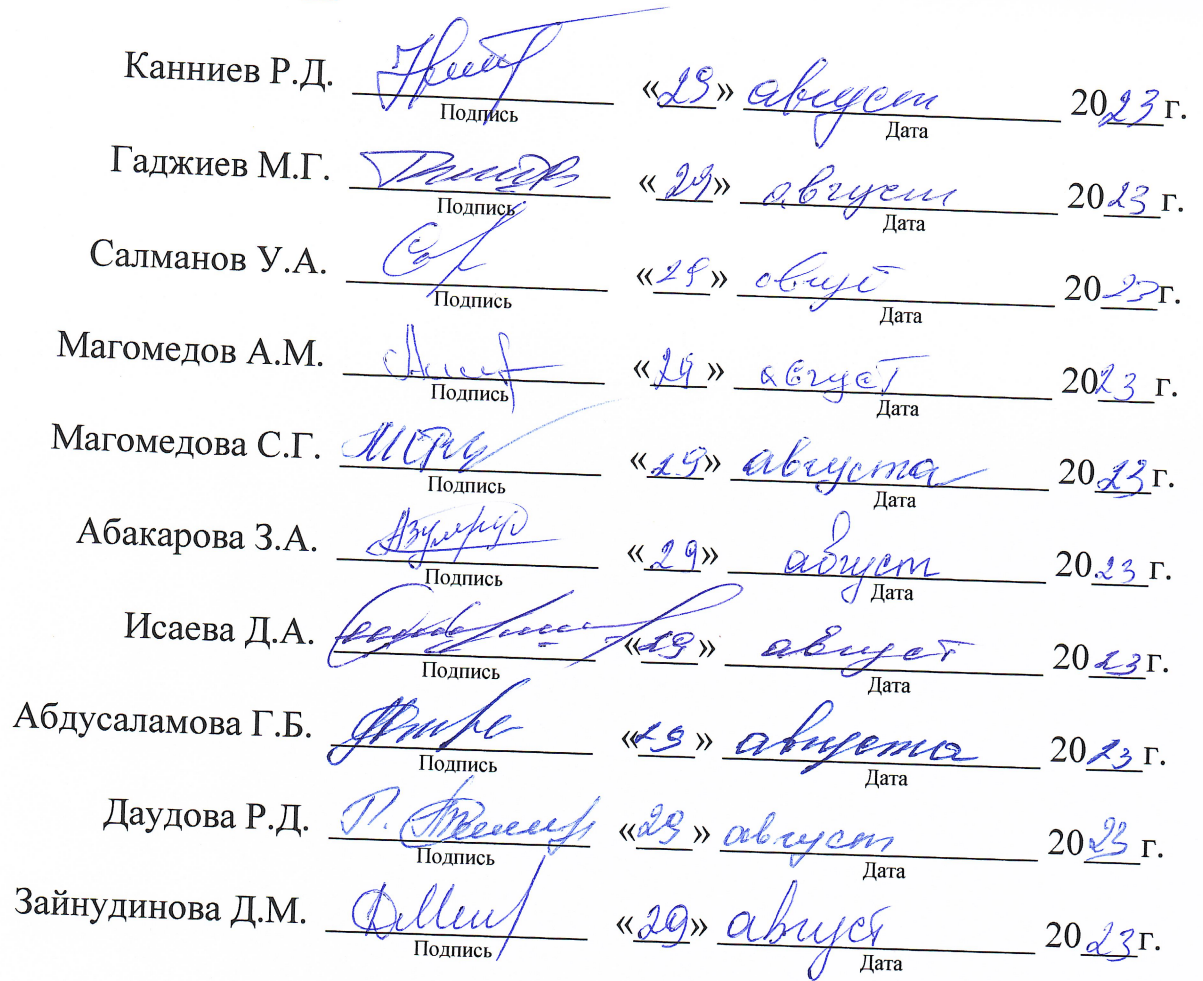 Канниев Р.Д. «29» август 2023г.
Подпись Дата
Гаджиев М.Г. «29» август 2023г.
Подпись Дата
Салманов У.А. «29» август 2023г.
Подпись Дата
Магомедов А.М. «29» август 2023г.
Подпись Дата
Магомедова С.Г. «29» августа 2023г.
Подпись Дата
Абакарова З.А. «29» август 2023г.
Подпись Дата
Исаева Д.А. «29» август 2023г.
Подпись Дата
Абдусаламова Г.Б. «29» августа 2023г.
Подпись Дата
Даудова Р.Д. «29» август 2023г.
Подпись Дата
Зайнудинова Д.М. «29» август 2023г.
Подпись Дата